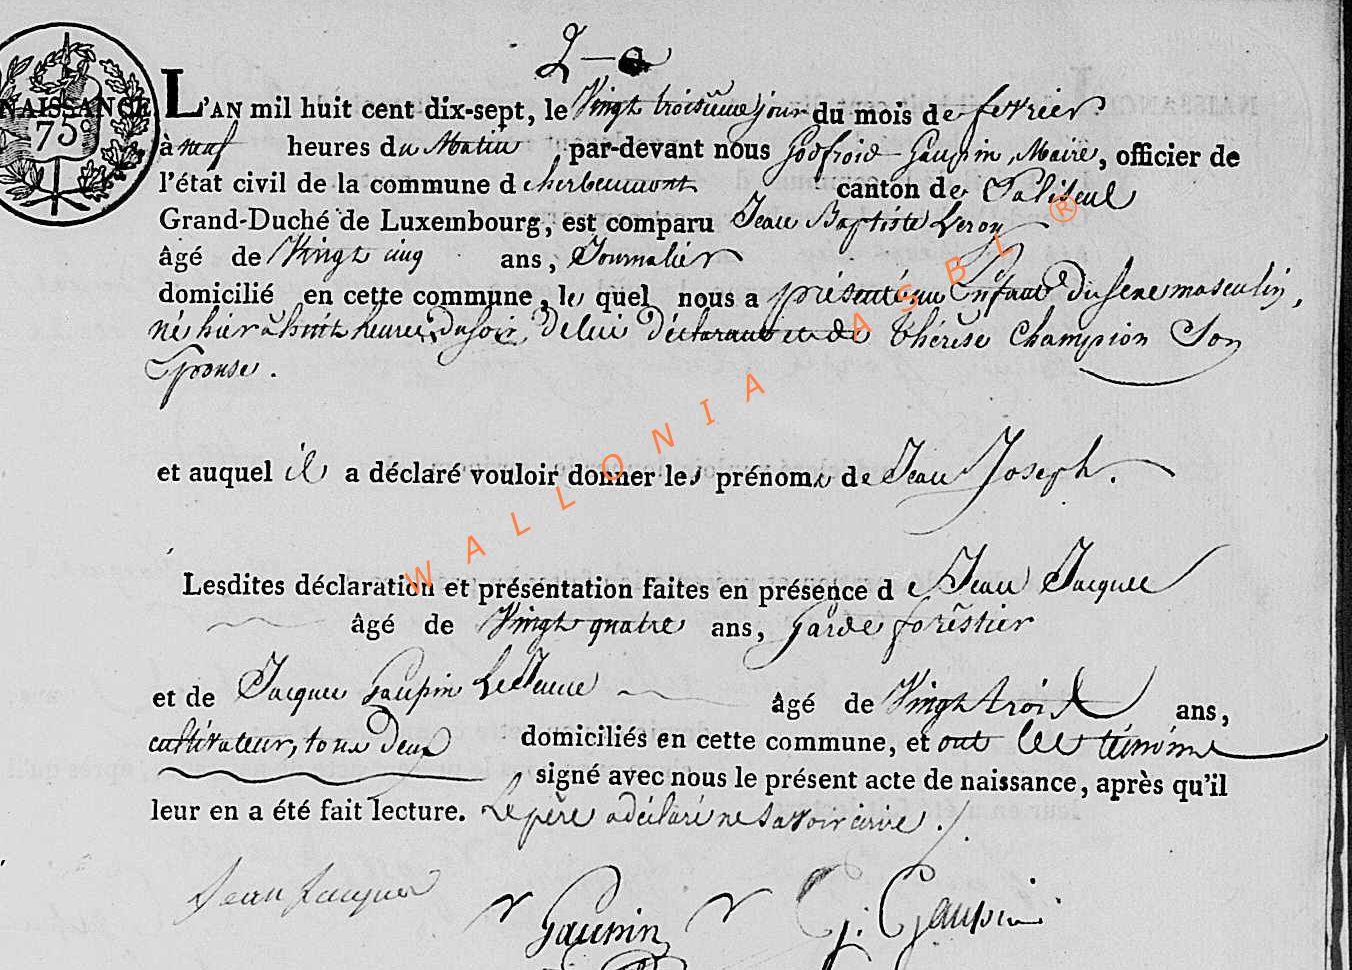 2
NAISSANCE
75c
L'AN mil huit cent dix-sept, le Vingt troisieme jour du mois de fevrier
à neuf heures du Matin, par-devant nous Godfroid Gaupin Maire, officier de
l'état civil de la commune d'herbeumont canton de Paliseul
Grand-Duché de Luxembourg, est comparu Jean Baptiste Leroy
âgé de Vingt cinq ans, Journalier
domicilié en cette commune, le quel nous a présenté un Enfant du sexe masculin,
né hier à huit heures du soir, de lui déclarant et de thérèse Champion Son
Epouse.
et auquel il a déclaré vouloir donner les prénoms de Jean Joseph.
Lesdites déclaration et présentation faites en présence de Jean Jacques
âgé de Vingt quatre ans, Garde forestier
et de Jacques Gaupin Le Jeune âgé de Vingt trois ans,
cultivateur, tous deux domiciliés en cette commune, et ont les témoins
signé avec nous le présent acte de naissance, après qu'il
leur en a été fait lecture. Le père a déclaré ne savoir écrire.
Jean Jacques
Gaupin
G. Gaupin
WALLONIA ASBL ®